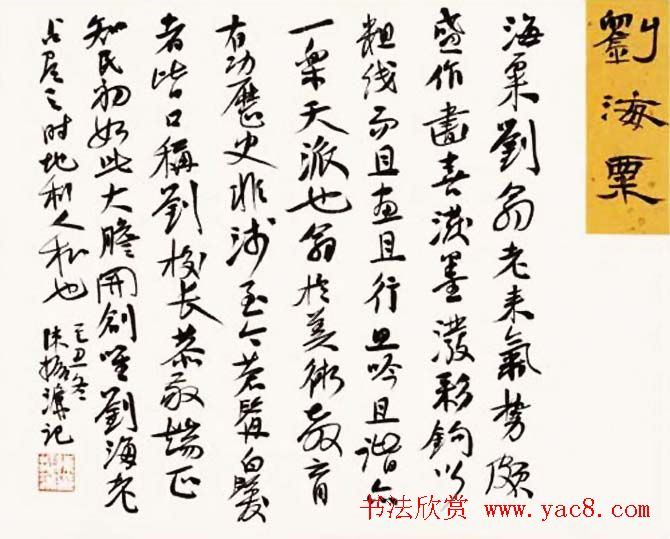 劉海粟
海粟劉翁老来氣势頗
盛作畫喜潑墨潑彩鉤以
粗线而且画且行且吟且谐亦
一樂天派也翁於美術教育
有功歷史非浅至今苍髯白髮
者皆口稱劉校长恭敬端正
知民初如此大膽開創唯劉海老
占尽天时地利人和也
己丑冬
陈振濂记
书法欣赏 www.yac8.com